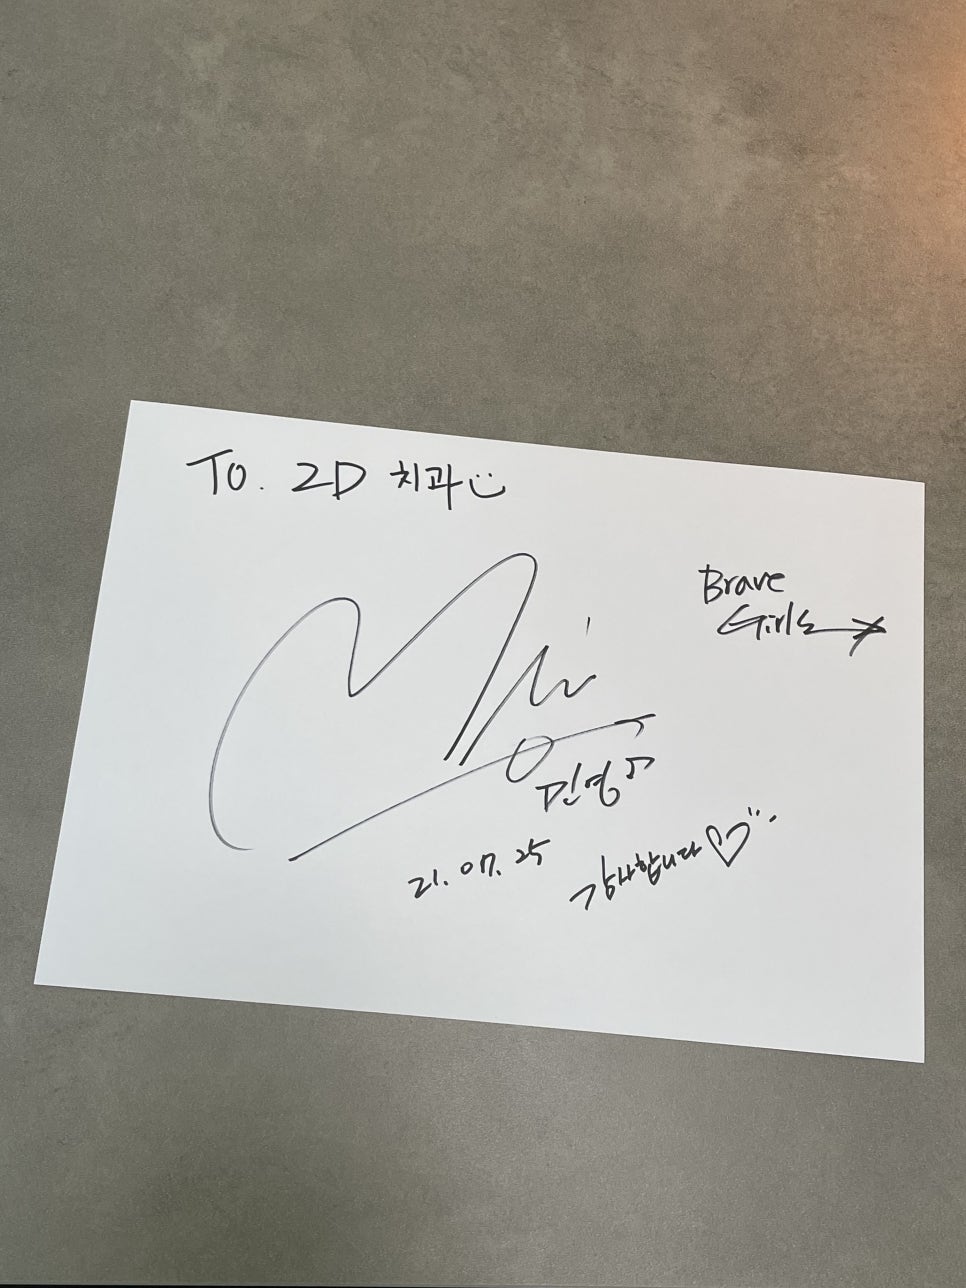 To. 2D 치과
Brave
Girls
민영
21. 07. 25
감사합니다